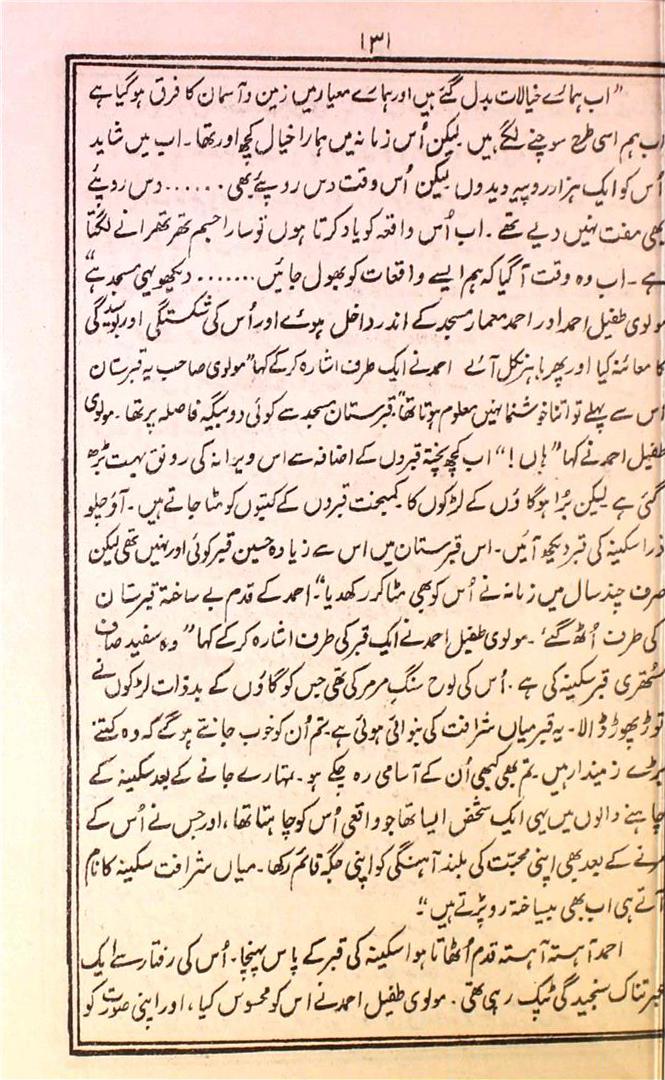 ۱۳۱
"اب ہمارے خیالات بدل گئے ہیں اور ہمارے معیار میں زمین و آسمان کا فرق ہو گیا ہے
اب ہم اسی طرح سوچنے لگے ہیں لیکن اُس زمانہ میں ہمارا خیال کچھ اور تھا۔ اب میں شاید
اُس کو ایک ہزار روپیہ دیدوں لیکن اُس وقت دس روپئے بھی ...... دس روپئے
بھی مفت نہیں دیے تھے۔ اب اُس واقعہ کو یاد کرتا ہوں تو سارا جسم تھرتھرانے لگتا
ہے۔ اب وہ وقت آ گیا کہ ہم ایسے واقعات کو بھول جائیں ....... دیکھو یہی مسجد ہے"
مولوی طفیل احمد اور احمد معمار مسجد کے اندر داخل ہوئے اور اُس کی شکستگی اور بوسیدگی
کا معائنہ کیا اور پھر باہر نکل آئے احمد نے ایک طرف اشارہ کر کے کہا "مولوی صاحب یہ قبرستان
اس سے پہلے تو اتنا خوشنما نہیں معلوم ہوتا تھا"، قبرستان مسجد سے کوئی دو بیگہ فاصلہ پر تھا۔ مولوی
طفیل احمد نے کہا "ہاں!" اب کچھ پختہ قبروں کے اضافہ سے اس ویرانہ کی رونق بہت بڑھ
گئی ہے لیکن بُرا ہو گاؤں کے لڑکوں کا کمبخت قبروں کے کتبوں کو مٹا جاتے ہیں۔ آؤ چلو
ذرا سکینہ کی قبر دیکھ آئیں۔ اس قبرستان میں اس سے زیادہ حسین قبر کوئی اور نہیں تھی لیکن
صرف چند سال میں زمانہ نے اُس کو بھی مٹا کر رکھ دیا"۔ احمد کے قدم بے ساختہ قبرستان
کی طرف اُٹھ گئے۔ مولوی طفیل احمد نے ایک قبر کی طرف اشارہ کر کے کہا "وہ سفید صاف
ستھری قبر سکینہ کی ہے۔ اُس کی لوح سنگِ مرمر کی تھی جس کو گاؤں کے بدذات لڑکوں نے
توڑ پھوڑ ڈالا۔ یہ قبر میاں شرافت کی بنوائی ہوئی ہے تم اُن کو خوب جانتے ہوگے کہ وہ کتنے
بڑے زمیندار ہیں تم بھی کبھی اُن کے آسامی رہ چکے ہو۔ تمہارے جانے کے بعد سکینہ کے
چاہنے والوں میں یہی ایک شخص ایسا تھا جو واقعی اُس کو چاہتا تھا، اور جس نے اُس کے
مرنے کے بعد بھی اپنی محبّت کی بلند آہنگی کو اپنی جگہ قائم رکھا۔ میاں شرافت سکینہ کا نام
آتے ہی اب بھی بیساختہ رو پڑتے ہیں"۔
احمد آہستہ آہستہ قدم اُٹھاتا ہوا سکینہ کی قبر کے پاس پہنچا۔ اُس کی رفتار سے ایک
عبرتناک سنجیدگی ٹپک رہی تھی۔ مولوی طفیل احمد نے اس کو محسوس کیا، اور اپنی صورت کو